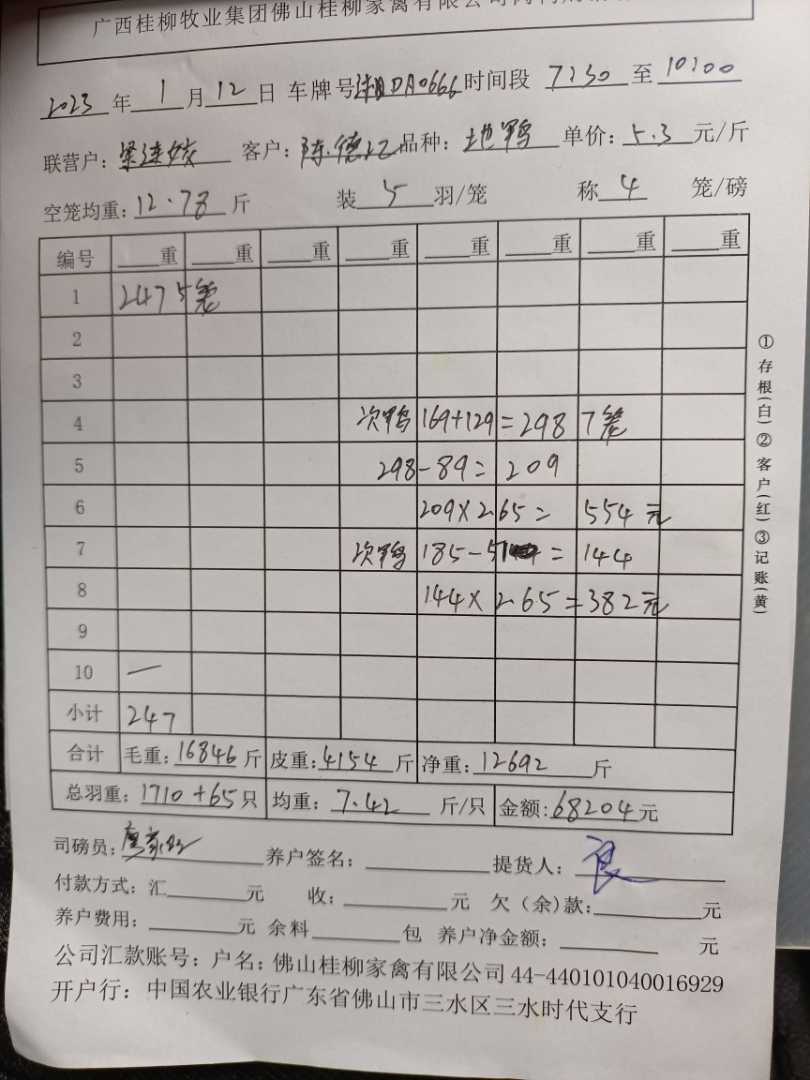 广西桂柳牧业集团佛山桂柳家禽有限公司
2023 年 1 月 12 日 车牌号湘DA0666 时间段 7:30 至 10:00
联营户: 客户: 陈德 品种: 土鸭 单价: 5.3 元/斤
空笼均重: 12.78 斤 装 5 羽/笼 称 4 笼/磅
编号 重 重 重 重 重 重 重 重
1 247 5笼
2
3
4 次鸭 169+129=298 7笼
5 298-89=209
6 209×2.65= 554元
7 次鸭 185-51 = 144
8 144×2.65=382元
9
10 一
小计 247
合计 毛重: 16846 斤 皮重: 4154 斤 净重: 12692 斤
总羽重: 1710+65 只 均重: 7.42 斤/只 金额: 68204 元
司磅员: 养户签名: 提货人: 良
付款方式: 汇 元 收: 元 欠(余)款: 元
养户费用: 元 余料 包 养户净金额: 元
公司汇款账号: 户名: 佛山桂柳家禽有限公司 44-440101040016929
开户行: 中国农业银行广东省佛山市三水区三水时代支行
①存根(白)②客户(红)③记账(黄)